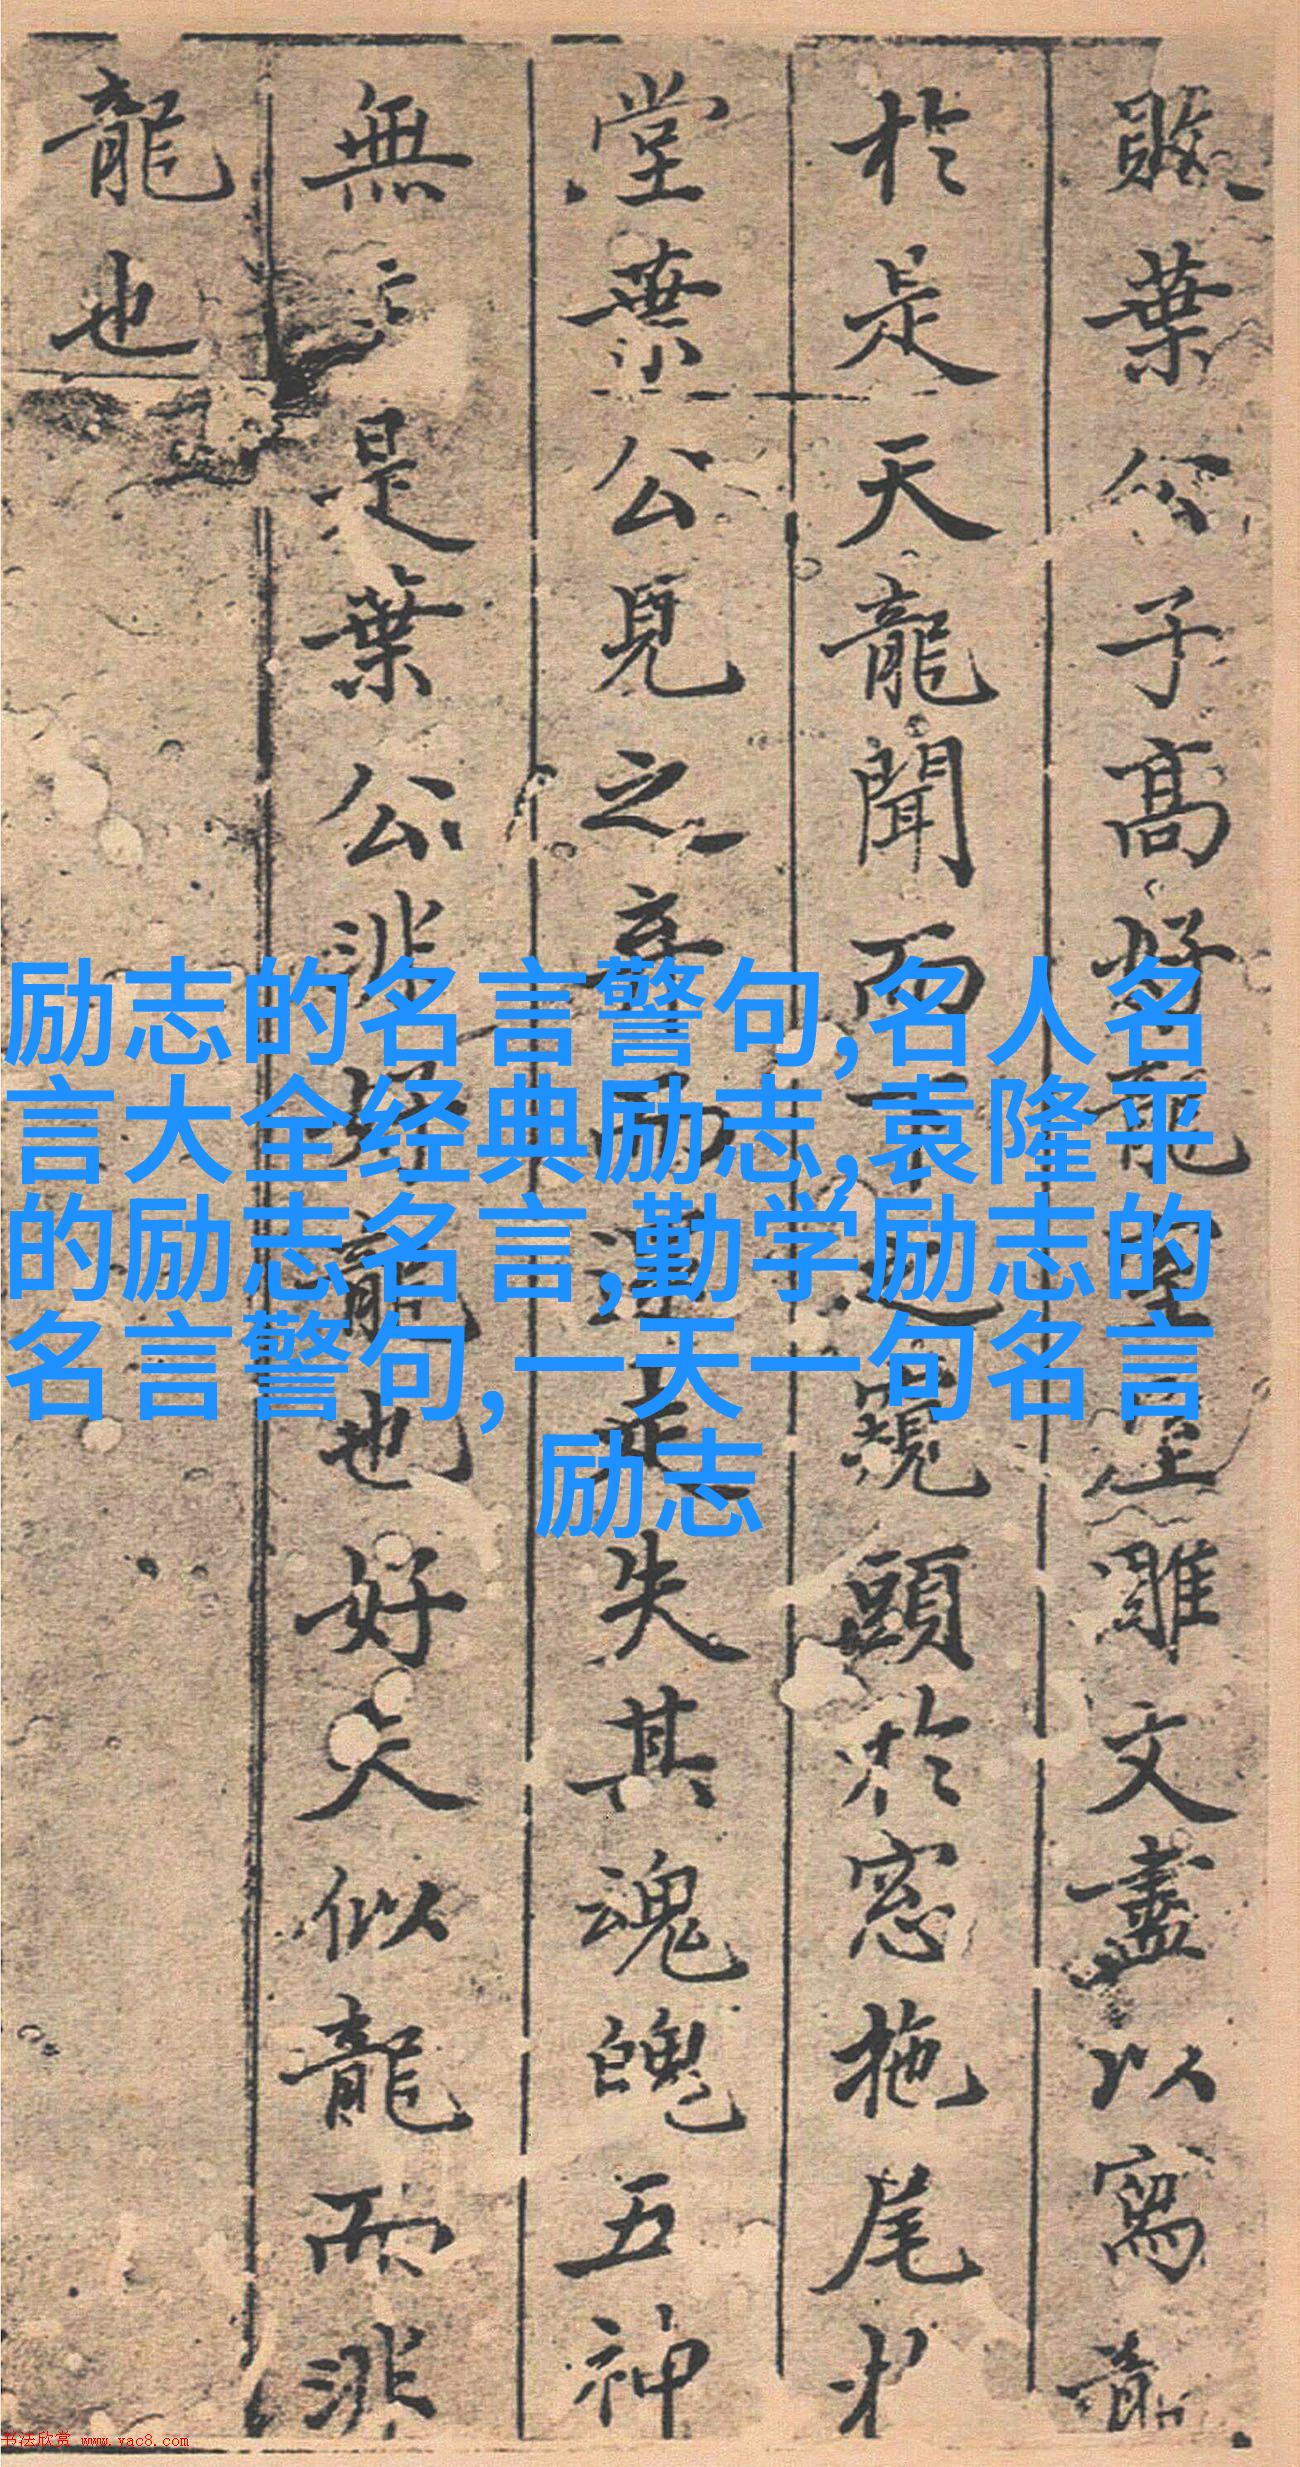 葉公子高好龍雕文盡以寫龍
於是天龍聞而下之窺頭於窓拖尾
堂葉公見之棄而還走失其魂魄五神
無主是葉公非好龍也好夫似龍而非
龍也
励志的名言警句,名人名
言大全经典励志,袁隆平
的励志名言,勤学励志的
名言警句,一天一句名言
励志
书法欣赏 www.yac8.com